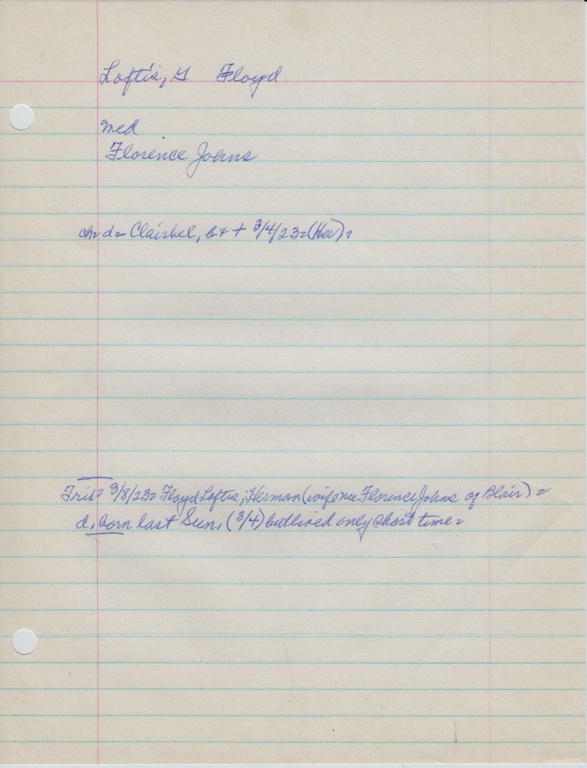 Loftis, G Floyd
med
Florence Johns
ch= d= Clairbel, b & + 3/4/23= (Her) =
Trib= 3/8/23= Floyd Loftis, Herman (wife nee Florence Johns of Blair) =
d. born last Sun. (3/4) but lived only short time =